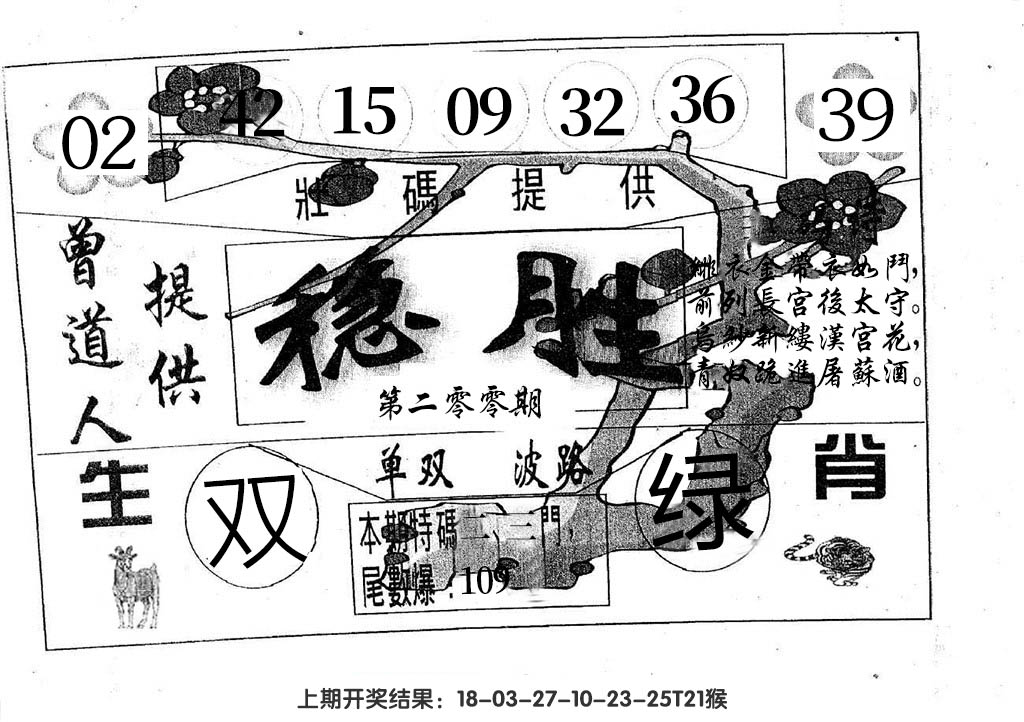 02 42 15 09 32 36 39
壯碼提供
特
曾道人
提供
稳胜
第二零零期
緋衣金帶衣如鬥，
前列長宮後太守。
烏紗新縷漢宮花，
青奴跪進屠蘇酒。
生肖
双
单双 波路
绿
本期特碼二、三門，
尾數爆：109
上期开奖结果：18-03-27-10-23-25T21猴